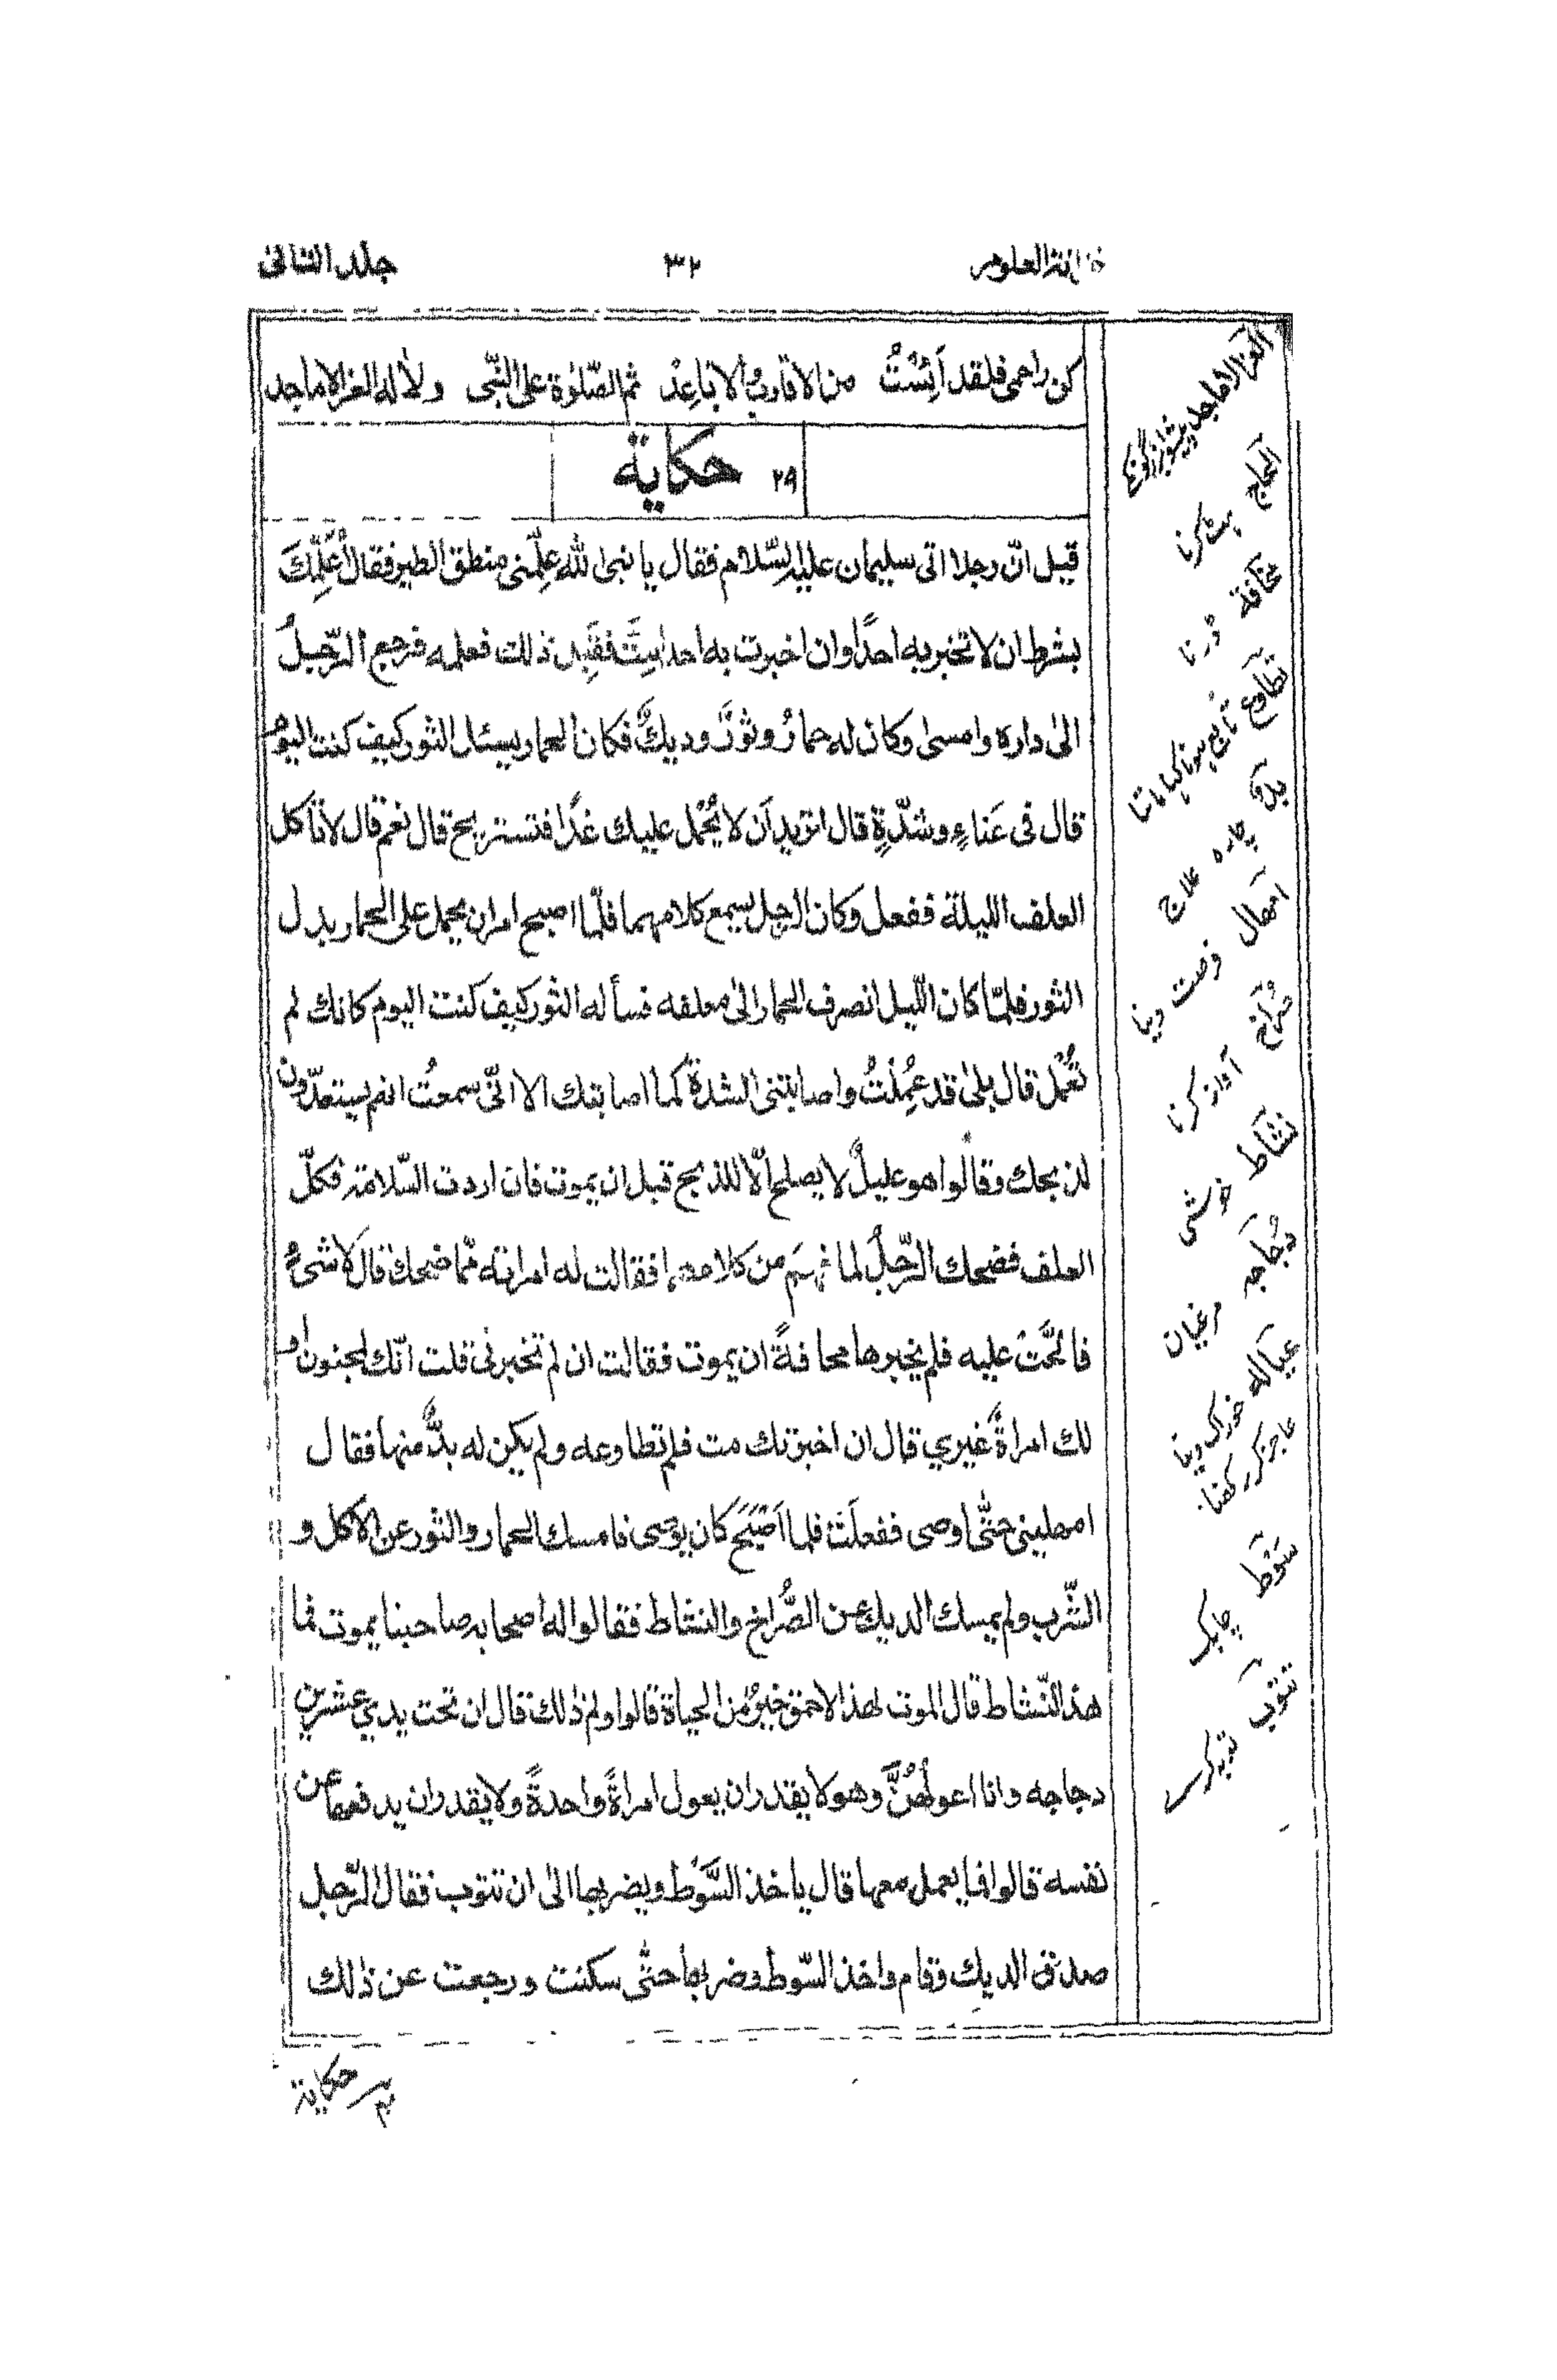 خزانة العلوم ٣٢ جلد الثانى
كن راحمى فلقد اَئِسْتُ من الاقارب والاباعِدْ ثم الصّلوٰة على النّبى ولاٰله الغر الاماجد
٢٩ حكاية
قيل انّ رجلا اتى سليمان عليه السّلام فقال يا نبى الله علِّمنى منطق الطير فقال اُعَلِّمُكَ
بشرط ان لا تخبر به احدًا وان اخبرت به احدا مِتَّ فقَبِل ذلك فعلمه فرجع الرّجلُ
الىٰ داره وامسىٰ وكان له حمارٌ وثورٌ وديكٌ فكان الحمار يسئل الثور كيف كنت اليوم
قال فى عَناءٍ وشدّةٍ قال اتريد اَن لا يُحْمل عليك غدًا فتستريح قال نعم قال لا تاكل
العلف الليلة ففعل وكان الرجل يسمع كلامهما فلمّا اصبح امر ان يحمل على الحمار بدل
الثور فلمّا كان اللّيل انصرف الحمار الىٰ معلفه فسأله الثور كيف كنت اليوم كانك لم
تُعْمل قال بلىٰ قد عُمِلْتُ واصابتنى الشدة كما اصابتك الا انّى سمعتُ انهم يستعدّون
لذبحك وقالوا هو عليلٌ لا يصلح الّا للذبح قبل ان يموت فان اردت السّلامة فكلّ
العلف فضحك الرّجلُ لما فهم من كلامهما فقالت له امراته ممّا ضحكك قال لا شىءٌ
فالحَّتْ عليه فلم يخبرها مخافةً ان يموت فقالت ان لم تخبرنى قلت انّك لمجنون او
لك امراةٌ غيري قال ان اخبرتك مت فلم تطاوعه ولم يكن له بدٌّ منها فقال
امهلينى حتّٰى اوصى ففعلَتْ فلما اَصْبَحَ كان يوصى فامسك الحمار والثور عن الاكل و
الشّرب ولم يمسك الديك عن الصُّراخ والنشاط فقالوا له اصحابه صاحبنا يموت فما
هذا النّشاط قال الموت لهذا الاحمق خيرٌ من الحياة قالوا ولم ذٰلك قال ان تحت يدي عشرين
دجاجه وانا اعولُهُنَّ وهو لا يقدر ان يعول امراةً واحدةً ولا يقدر ان يدفعها عن
نفسه قالوا فما يعمل معها قال ياخذ السَّوط ويضربها الىٰ ان تتوب فقال الرّجل
صدق الديك وقام واخذ السّوط وضربها حتّٰى سكنت ورجعت عن ذٰلك
الغر الاماجد
الحاح ہٹ کرنا
مخافة ڈرنا
تطاوع
بدّ چارہ علاج
امهال فرصت دینا
صُراخ آواز کرنا
نشاط خوشی
دجاجہ مرغیان
عیالہ خوراک دینا
سوط چابک
تتوب
حكاية